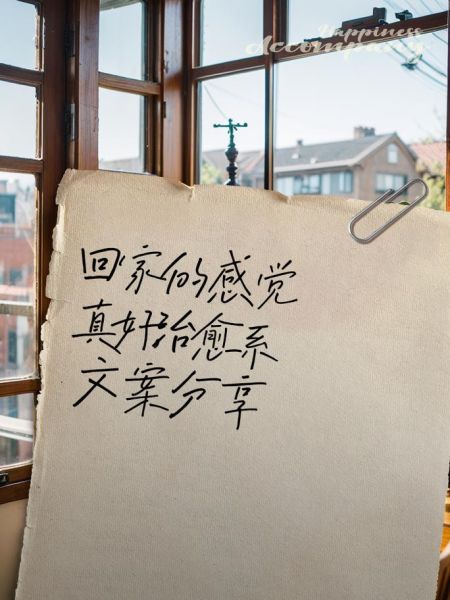 Happiness
Accompany
回家的感觉
真好治愈系
文案分享